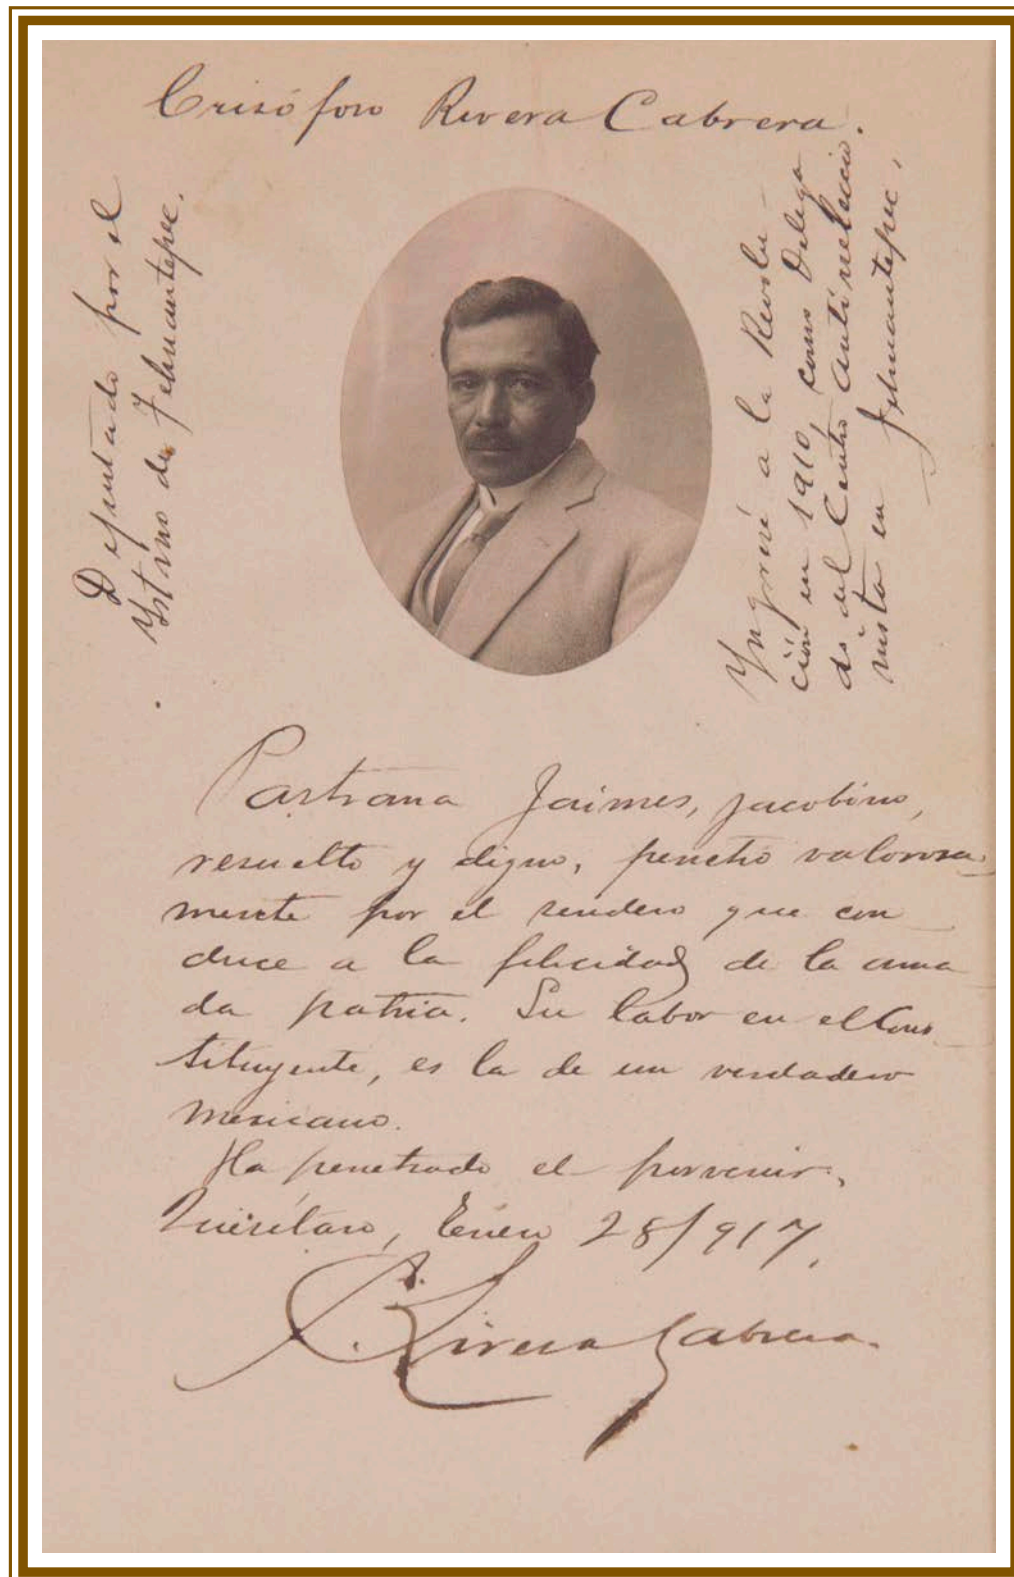 Crisóforo Rivera Cabrera.
Diputado por el
Ystmo de Tehuantepec.
Yngresé a la Revolu-
ción en 1910, como Delega
do del Centro Antirreleccio
nista en Tehuantepec.
Pastrana Jaimes, jacobino,
resuelto y digno, penetró valorosa
mente por el sendero que con
duce a la felicidad de la ama
da patria. Su labor en el Cons
tituyente, es la de un verdadero
mexicano.
Ha penetrado el porvenir.
Querétaro, Enero 28/917.
C. Rivera Cabrera.